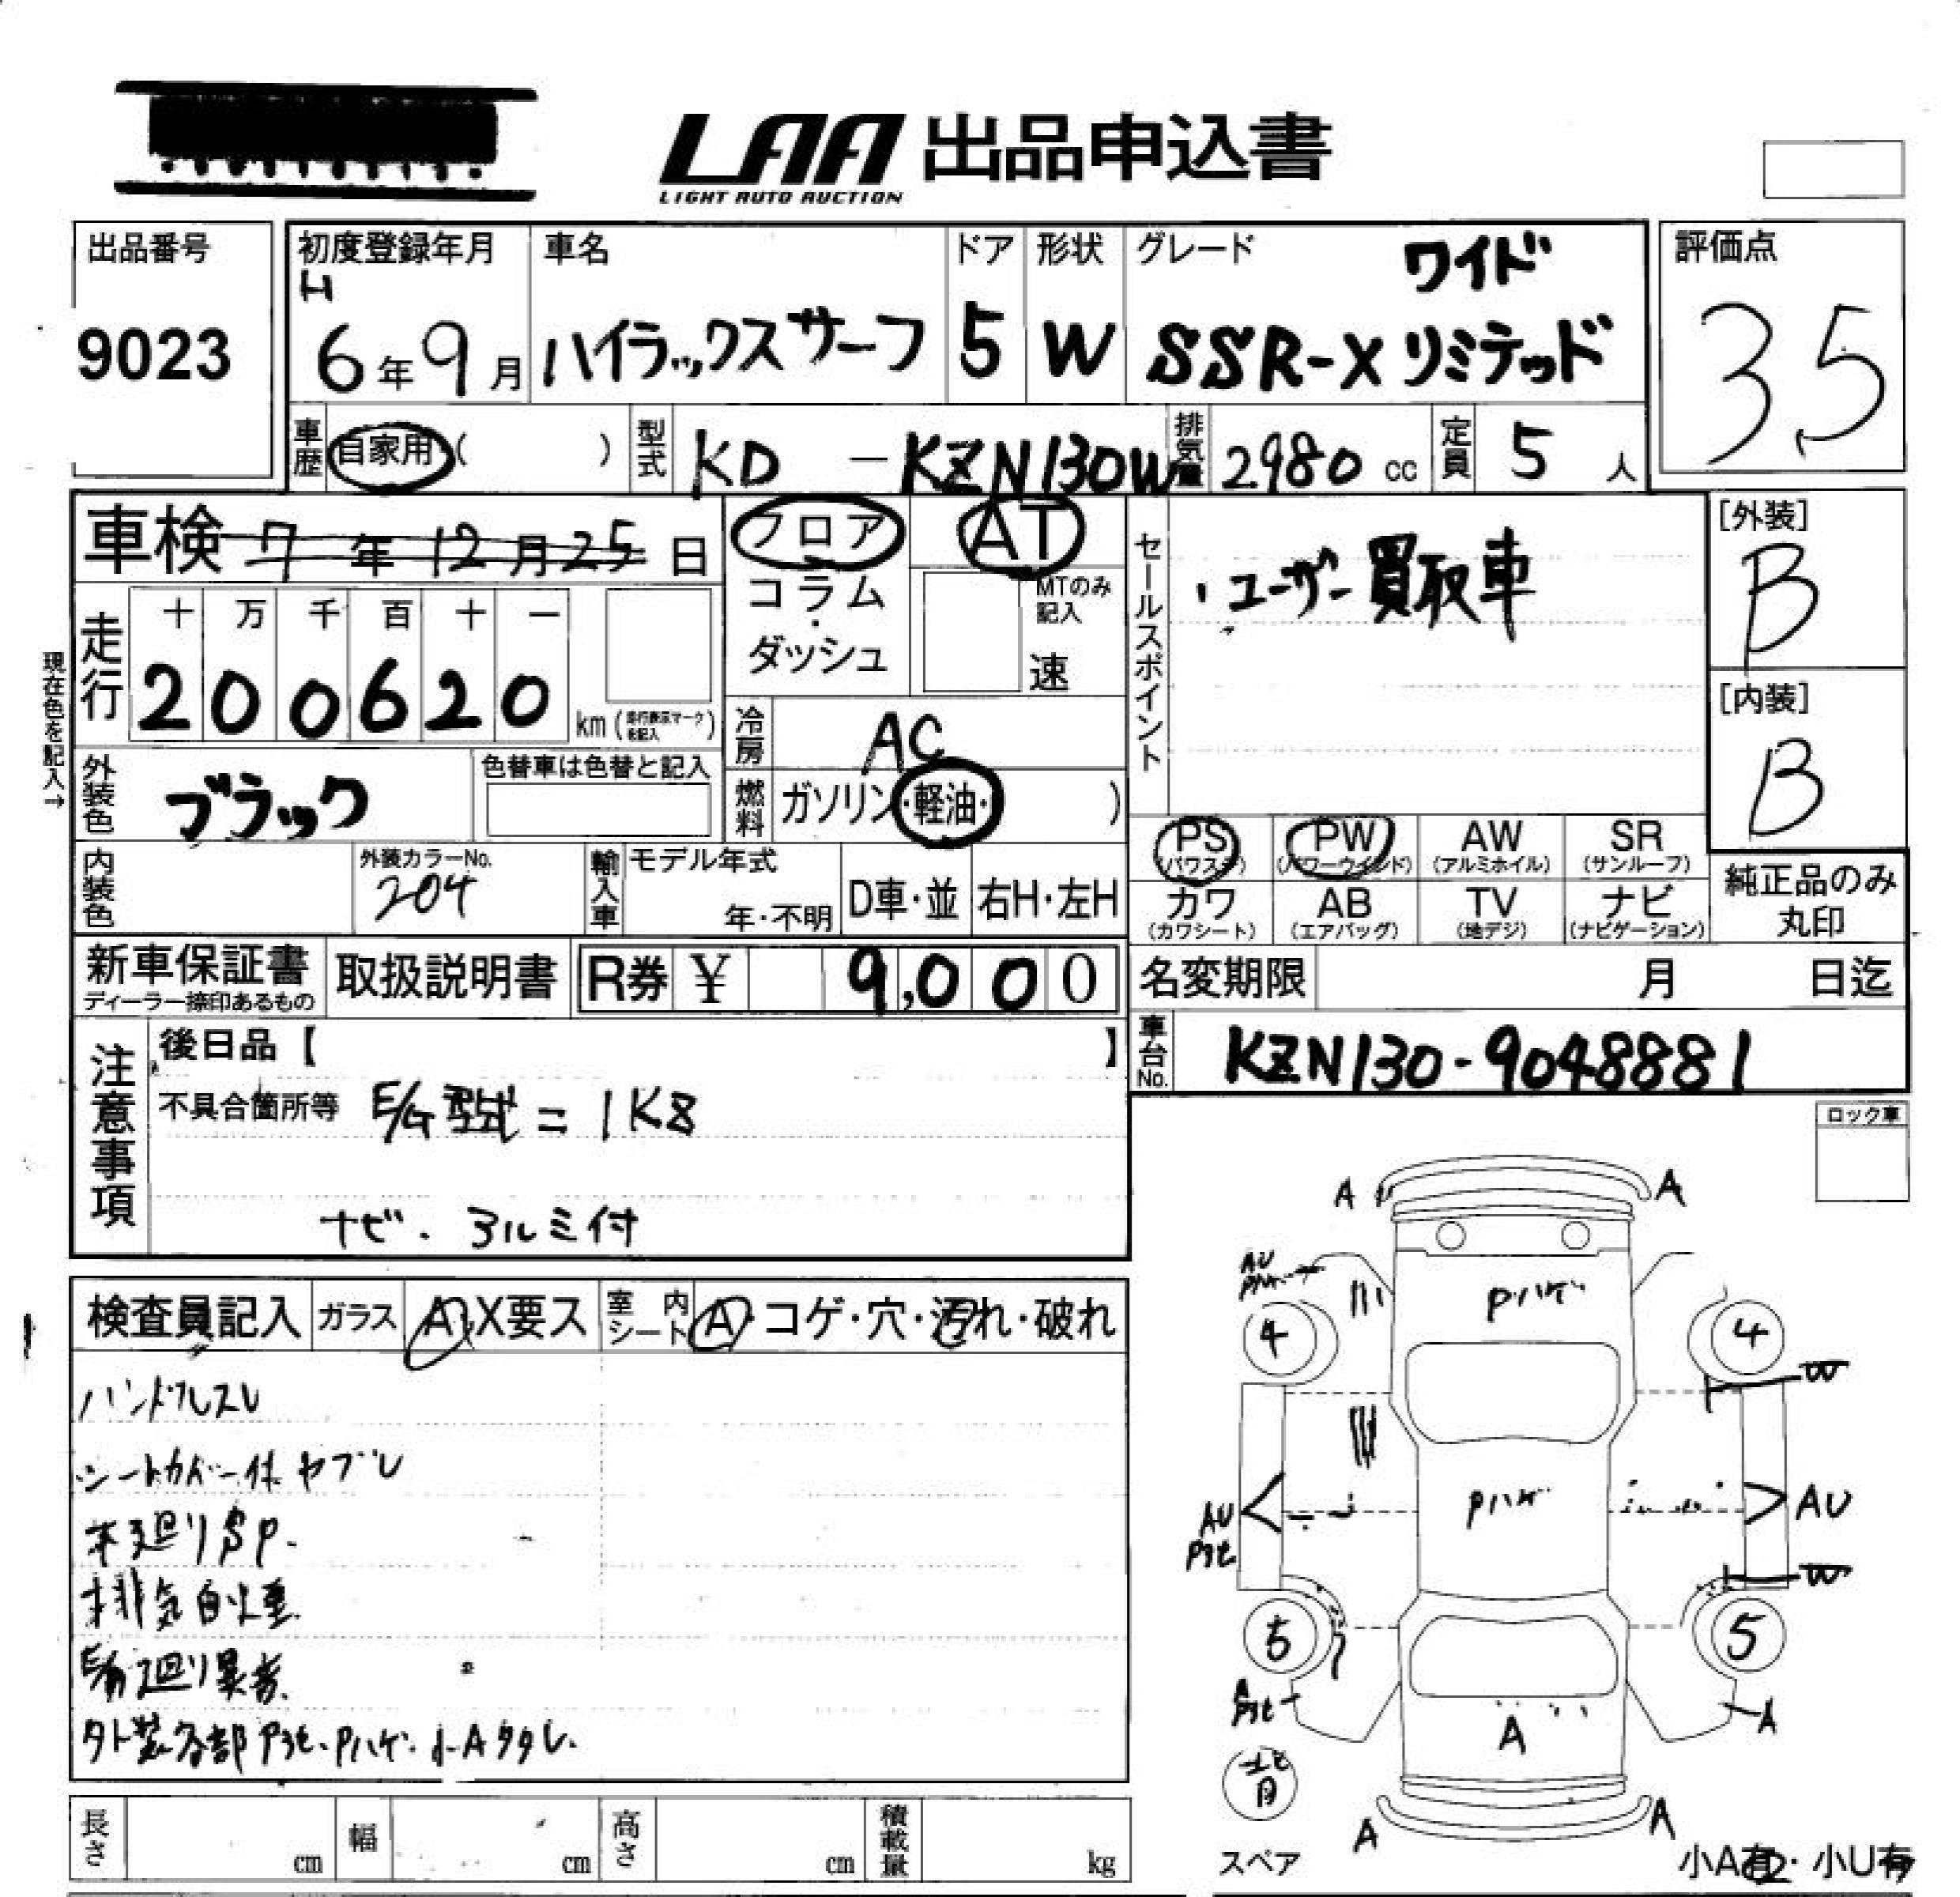 LAA 出品申込書
LIGHT AUTO AUCTION
出品番号
9023
初度登録年月
H
6年9月
車名
ハイラックスサーフ
ドア
5
形状
W
グレード
ワイド
SSR-X リミテッド
評価点
3.5
車歴
自家用( )
型式
KD - KZN130W
排気量
2980 cc
定員
5 人
車検 7年12月25日
走行
十 万 千 百 十 一
2 0 0 6 2 0
km(走行表示マークを記入)
現在色を記入→
外装色
ブラック
色替車は色替と記入
内装色
外装カラーNo.
204
フロア
コラム
・
ダッシュ
AT
MTのみ
記入
速
冷房
AC
燃料
ガソリン・軽油・ )
輸入車
モデル年式
年・不明
D車・並
右H・左H
セールスポイント
・ユーザー買取車
[外装]
B
[内装]
B
PS
(パワステ)
PW
(パワーウインド)
AW
(アルミホイル)
SR
(サンルーフ)
カワ
(カワシート)
AB
(エアバッグ)
TV
(地デジ)
ナビ
(ナビゲーション)
純正品のみ
丸印
新車保証書
ディーラー捺印あるもの
取扱説明書
R券 ¥ 9,000
名変期限 月 日迄
車台No.
KZN130-9048881
注意事項
後日品【 】
不具合箇所等 E/G型式=1KZ
ナビ・アルミ付
ロック車
検査員記入
ガラス
A X要ス
室内シート
A・コゲ・穴・汚れ・破れ
ハンドルスレ
シートカバー付 ヤブレ
下廻りSP.
排気白火重
E/G廻り異音.
外装各部Pヨセ.Pハゲ.小Aタタレ.
A
A
AU
Pハゲ
4
4
W
Pハゲ
AU
Pヨセ
AU
W
5
5
A
Pヨセ
A
A
A
A
スペア
小A有・小U有
長さ cm
幅 cm
高さ cm
積載量 kg